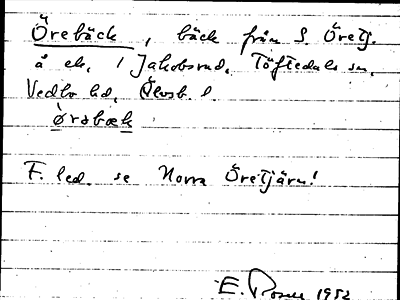 Örebäck, bäck från S. Öretj.
å ek. / Jakobsrud, Töftedals sn,
Vedbo hd, Älvsb. l.
ørəbæk
F. led. se Norra Öretjärn!
E. 1952